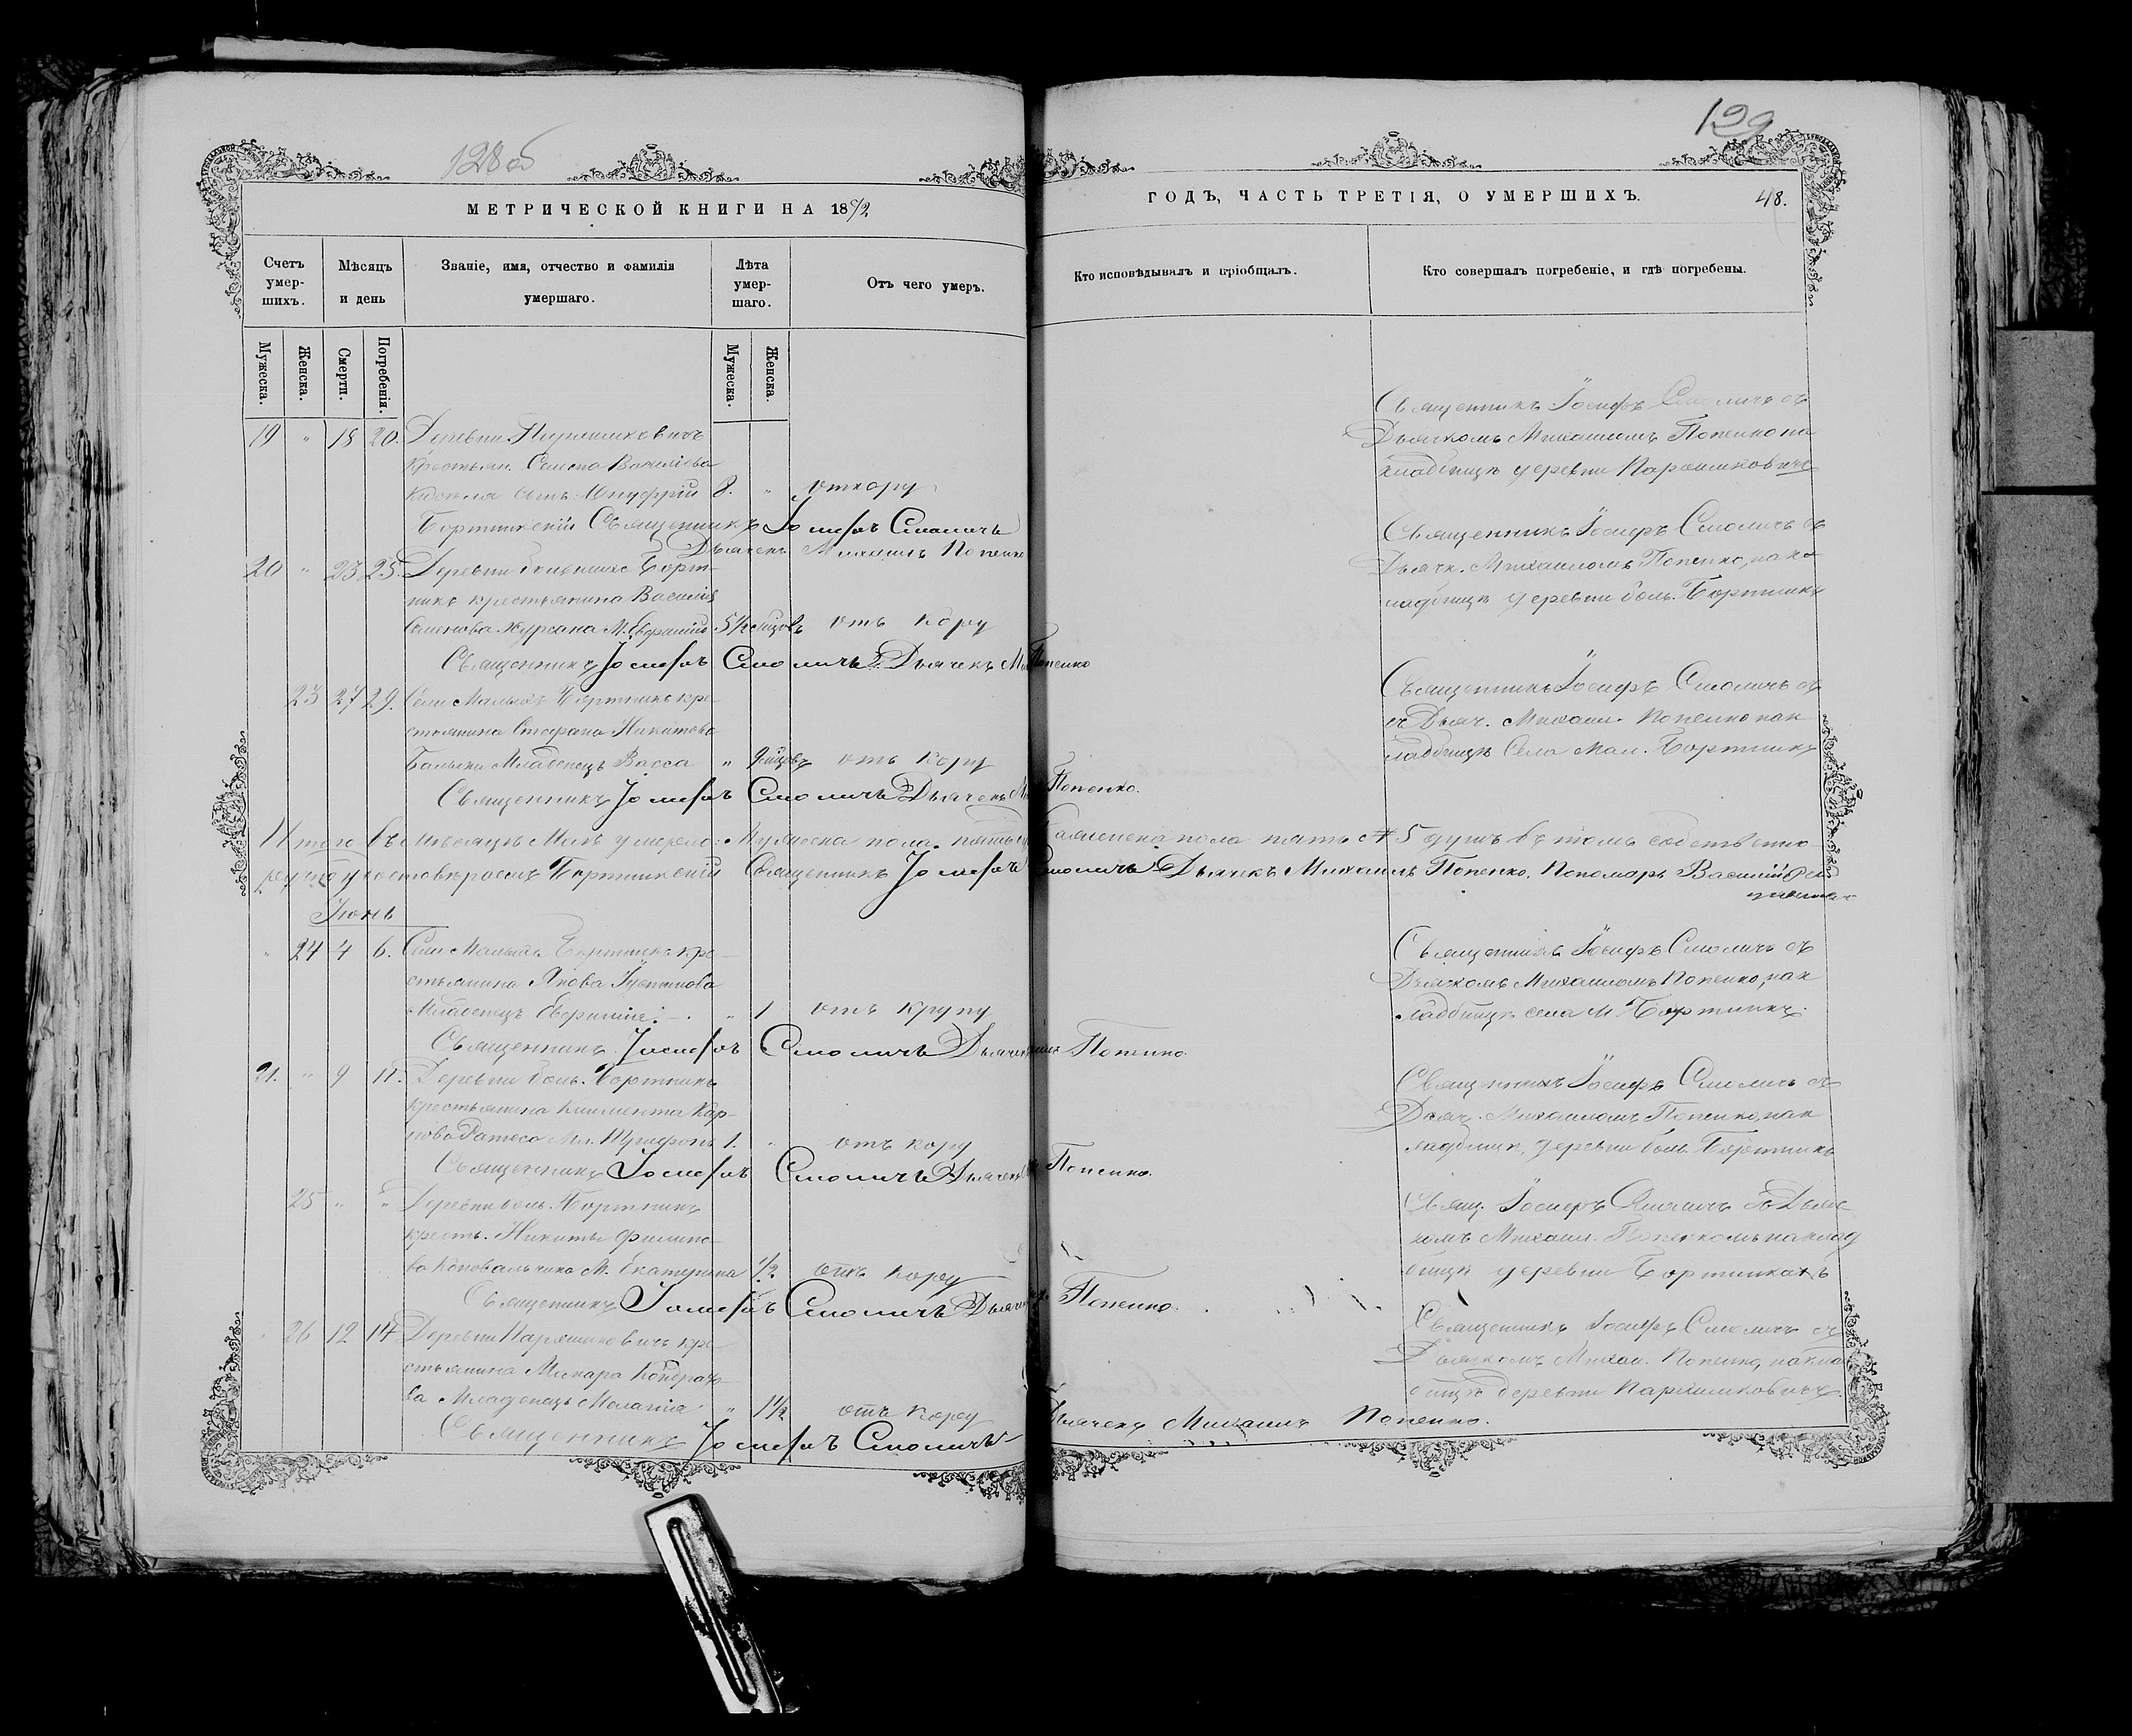 128об
129
МЕТРИЧЕСКОЙ КНИГИ НА 1872
ГОДЪ, ЧАСТЬ ТРЕТІЯ, О УМЕРШИХЪ.
48.
Счетъ умер-шихъ.
Мѣсяцъ и день
Званіе, имя, отчество и фамилія умершаго.
Лѣта умер-шаго.
Отъ чего умеръ.
Кто исповѣдывалъ и пріобщалъ.
Кто совершалъ погребеніе, и гдѣ погребены.
Мужеска.
Женска.
Смерти.
Погребенія.
Мужеска.
Женска.
19 " 18 20. Деревни
крестьян. Василіева
сынъ Онуфрій 8. " отъ кору
Бортникскій Священникъ Іосифъ Смоличъ
Дьячекъ Михаилъ Попенко
Священникъ Іосифъ Смоличъ съ
Дьячкомъ Михаиломъ Попенко на
кладбищѣ деревни Паршиковичъ
20 " 23 25. Деревни Борт-
никъ крестьянина Василія
Семенова М. 5½ отъ кору
Священникъ Іосифъ Смоличъ Дьячекъ Попенко
Священникъ Іосифъ Смоличъ съ
Дьячк. Михаиломъ Попенко, на к-
ладбищѣ деревни боль. Бортникъ
23 27 29. Села Малыхъ Бортникъ кре-
стьянина Стефана Никитова
Младенецъ Васса " отъ кору
Священникъ Іосифъ Смоличъ Дьячекъ Попенко.
Священникъ Іосифъ Смоличъ съ
съ Дьяч. Михаил. Попенко на к
ладбищѣ села Мал. Бортникъ
Итого въ мѣсяцѣ Маѣ умерло: Мужеска пола пять женска пола пять 5 душъ въ томъ собственно-
ручно удостовѣряемъ Бортникскій Священникъ Іосифъ Смоличъ Дьячекъ Михаилъ Попенко, Пономарь Василій
Іюнь
" 24 4 6. Села Малыхъ Бортникъ кре-
стьянина Якова Іустинова
Младенецъ " 1 отъ крупу
Священникъ Іосифъ Смоличъ Дьячекъ Попенко.
Священникъ Іосифъ Смоличъ съ
Дьячкомъ Михаиломъ Попенко, на к
ладбищѣ села М. Бортникъ.
21. " 9 11. Деревни боль. Бортникъ
крестьянина Климента Кар-
пова Мл. Трифонъ 1. " отъ кору
Священникъ Іосифъ Смоличъ Дьячекъ Попенко.
Священникъ Іосифъ Смоличъ съ
Дьяч. Михаиломъ Попенко, на к
ладбищѣ, деревни боль. Бортникъ
25 " " Деревни боль. Бортникъ
крест. Никиты Филипо-
ва М. Екатерина ½ отъ кору
Священникъ Іосифъ Смоличъ Дьячекъ Попенко.
Свящ. Іосифъ Смоличъ съ Дьяч-
комъ Михаил. Попенкомъ на клад
бищѣ деревни Бортникахъ
26 12 14 Деревни Паршиковичъ кре-
стьянина Макара Кондрать-
ва Младенецъ Меланія " 1½ отъ кору
Священникъ Іосифъ Смоличъ Дьячекъ Михаилъ Попенко.
Священникъ Іосифъ Смоличъ съ
Дьячкомъ Михаи. Попенко, на клад
бищѣ деревни Паршиковичъ.